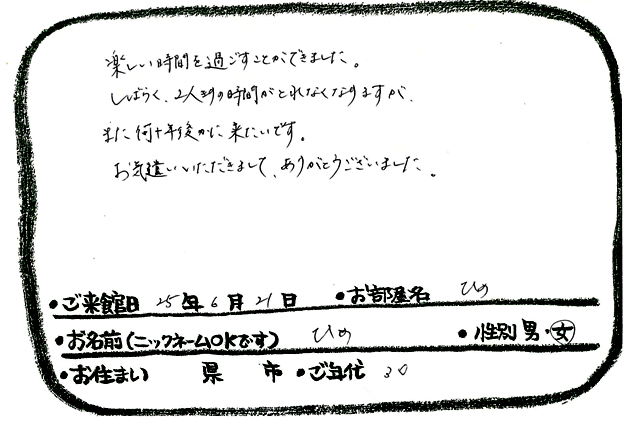 楽しい時間を過ごすことができました。
しばらく、2人きりの時間がとれなくなりますが、
また何十年後かに来たいです。
お気遣いいただきまして、ありがとうございました。
•ご来館日 25年6月21日 •お部屋名 ひめ
•お名前(ニックネームOKです) ひめ •性別 男・女
•お住まい 県 市 •ご年代 30